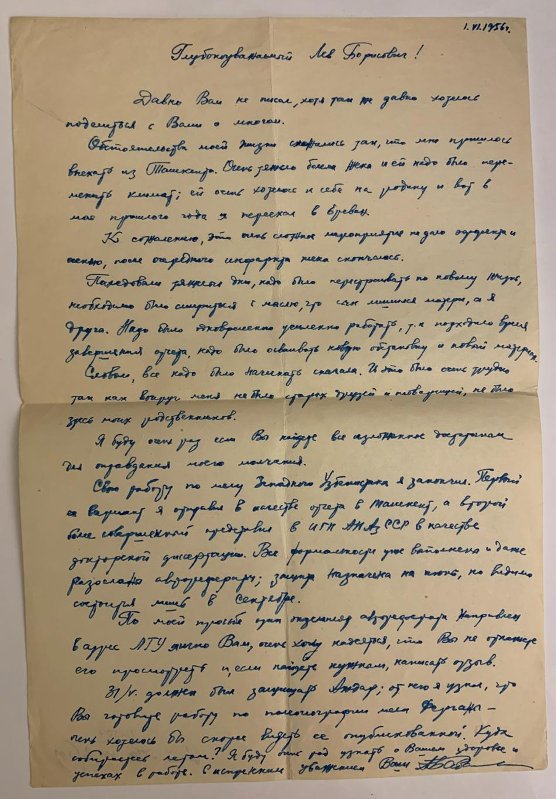 1.VI.1956г.
Глубокоуважаемый Лев Борисович!
Давно Вам не писал, хотя так же давно хотелось
поделиться с Вами о многом.
Обстоятельства моей жизни сложились так, что мне пришлось
выехать из Ташкента. Очень тяжело болела жена и ей надо было пере-
менить климат; ей очень хотелось к себе на родину и вот в
мае прошлого года я переехал в Ереван.
К сожалению, это очень сложное мероприятие не дало эффекта и
осенью, после очередного инфаркта жена скончалась.
Последовали тяжелые дни, надо было перестраивать по новому жизнь,
необходимо было смириться с мыслью, что сын лишился матери, а я
друга. Надо было одновременно усиленно работать, т.к. подходило время
завершения отчета, надо было осваивать новую обстановку и новый материал.
Словом, все надо было начинать сначала. И это было очень трудно
так как вокруг меня не было старых друзей и товарищей, не было
здесь моих родственников.
Я буду очень рад если Вы найдете все изложенное достаточным
для оправдания моего молчания.
Свою работу по мелу Западного Узбекистана я закончил. Первый
ее вариант я отправил в качестве отчета в Ташкент, а второй
более совершенный представил в ИГН АН Аз ССР в качестве
докторской диссертации. Все формальности уже выполнено и даже
разосланы авторефераты; защита назначена на июнь, но видимо
состоится лишь в сентябре.
По моей просьбе один экземпляр автореферата направлен
в адрес ЛГУ лично Вам, очень хочу надеяться, что Вы не откажете
его просмотреть и, если найдете нужным, написать отзыв.
31/V. должен был защищать ; от него я узнал, что
Вы готовите работу по палеогеографии мела Ферганы-
очень хотелось бы скорее видеть ее опубликованной. Куда
собираетесь летом? Я буду очень рад узнать о Вашем здоровье и
успехах в работе. С искренним уважением Ваш